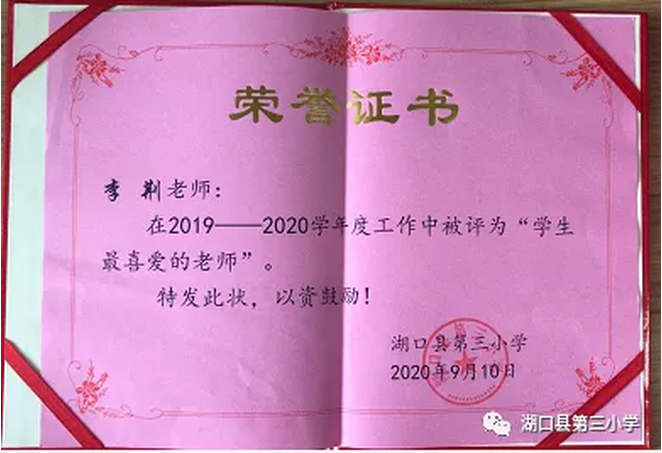 荣誉证书
李 荆老师：
在2019——2020学年度工作中被评为“学生
最喜爱的老师”。
特发此状，以资鼓励！
湖口县第三小学
2020年9月10日
湖口县第三小学